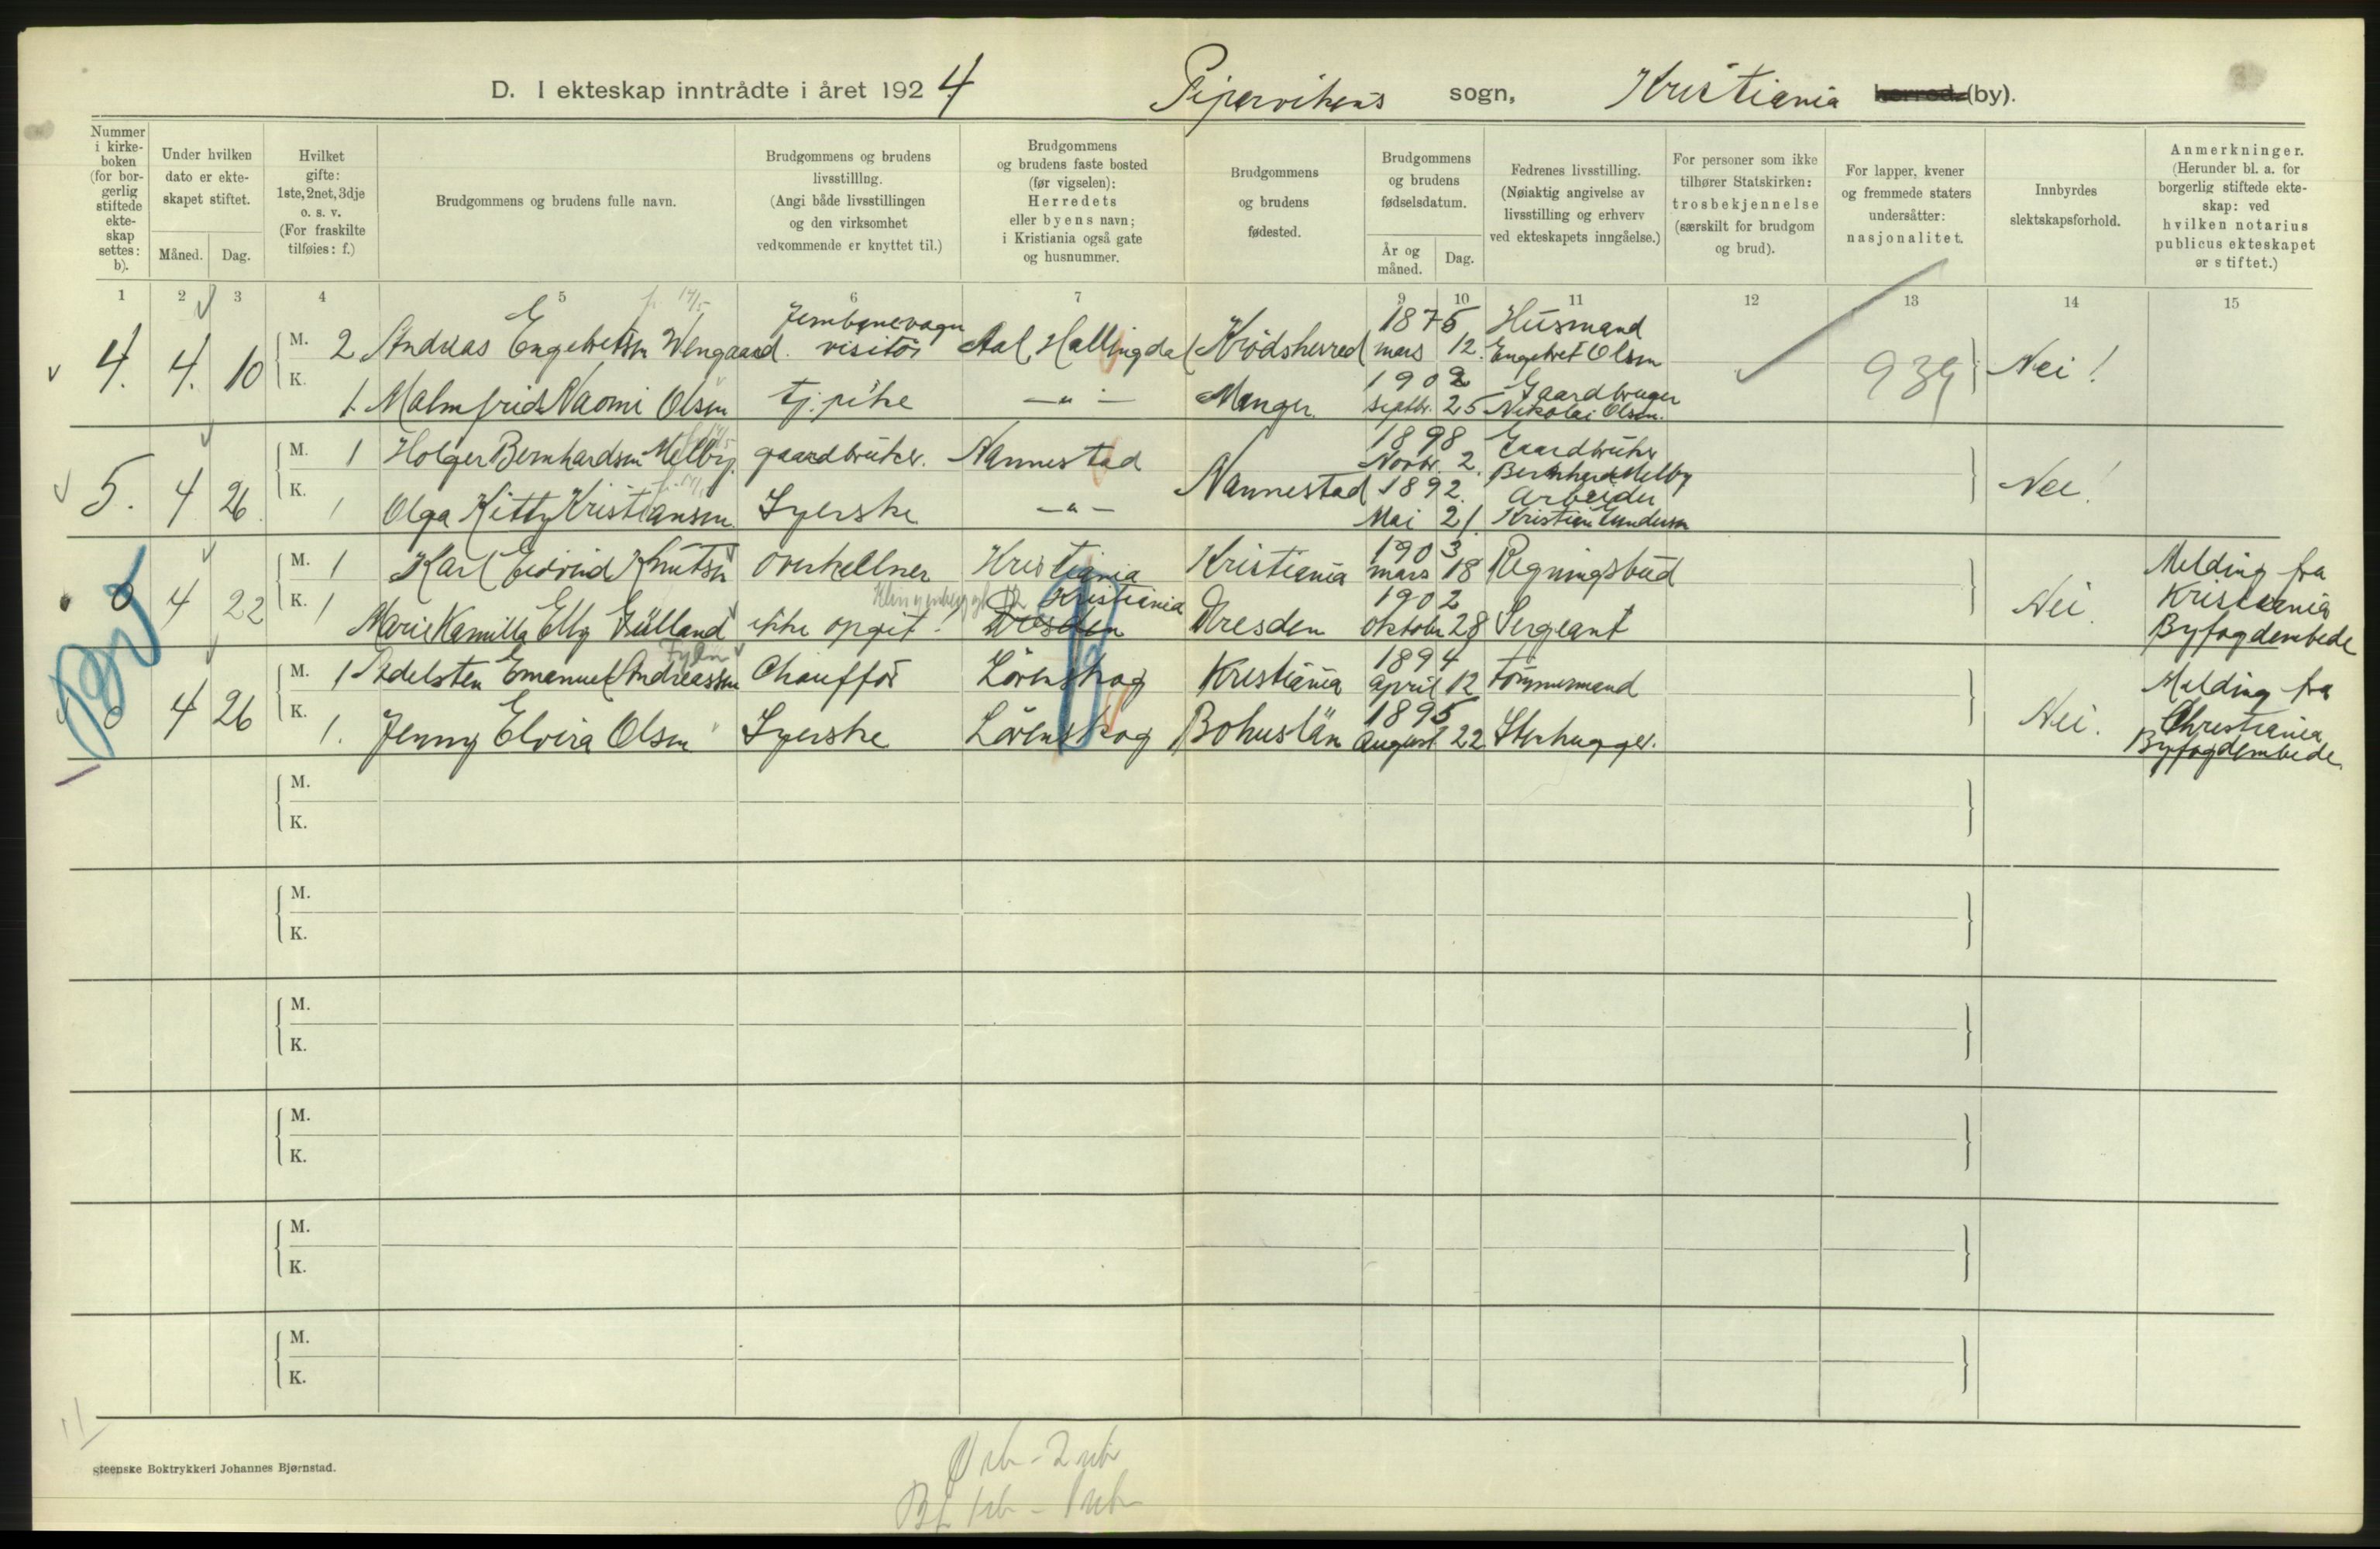 D. I ekteskap inntrådte i året 1924 Pipervikens sogn, Kristiania herred (by).
Nummer i kirkeboken (for borgerlig stiftede ekteskap settes: b).
Under hvilken dato er ekteskapet stiftet.
Måned. Dag.
Hvilket gifte: 1ste, 2net, 3dje o. s. v. (For fraskilte tilføies: f.)
Brudgommens og brudens fulle navn.
Brudgommens og brudens livsstilling. (Angi både livsstillingen og den virksomhet vedkommende er knyttet til.)
Brudgommens og brudens faste bosted (før vigselen): Herredets eller byens navn; i Kristiania også gate og husnummer.
Brudgommens og brudens fødested.
Brudgommens og brudens fødselsdatum.
År og måned. Dag.
Fedrenes livsstilling. (Nøiaktig angivelse av livsstilling og erhverv ved ekteskapets inngåelse.)
For personer som ikke tilhører Statskirken: trosbekjennelse (særskilt for brudgom og brud).
For lapper, kvener og fremmede staters undersåtter: nasjonalitet.
Innbyrdes slektskapsforhold.
Anmerkninger. (Herunder bl. a. for borgerlig stiftede ekteskap: ved hvilken notarius publicus ekteskapet er stiftet.)
1 2 3 4 5 6 7 8 9 10 11 12 13 14 15
4. 4. 10 M. 2 Andreas Engebretsen Wengaard. Jernbanevogn visitör Aal, Hallingdal Krödsherred 1875 mars 12. Husmand Engebret Olsen 939 Nei!
K. 1. Malmfrid Naomi Olsen tj. pike —"— Manger. 1902 Septbr. 25 Gaardbruger Nikolai Olsen.
5. 4 26. M. 1 Holger Bernhardsen Melby. gaardbruker. Nannestad Nannestad 1898 Novbr. 2. Gaardbruker Bernhard Melby Nei.
K. 1 Olga Kitty Kristiansen. Syerske —"— 1892. Mai 21 Arbeider Kristian Gundersen
0 4 22 M. 1 Karl Eivind Knutsen Overkellner Kristiania Kristiania 1903 mars 18 Regningsbud Nei. Melding fra Kristiania Byfogdembede
K. 1 Marie Kamilla Elly Gülland ikke opgit! Dresden Kristiania Dresden 1902 Oktober 28 Sergeant
0 4 26 M. 1 Adelsten Emanuel Andreassen Chaufför Lörenskog Kristiania 1894 April 12 Tömmermand Nei. Melding fra Christiania Byfogdembede.
K. 1. Jenny Elvira Olsen Syerske Lörenskog Bohuslän 1895 August 22 Stenhugger.
M.
K.
M.
K.
M.
K.
M.
K.
M.
K.
M.
K.
Steenske Boktrykkeri Johannes Bjørnstad.